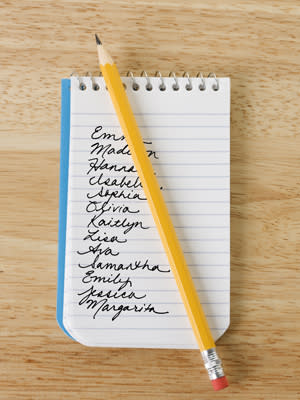 Madison
Hannah
Sophia
Olivia
Kaitlyn
Lisa
Ava
Samantha
Emily
Jessica
Margarita